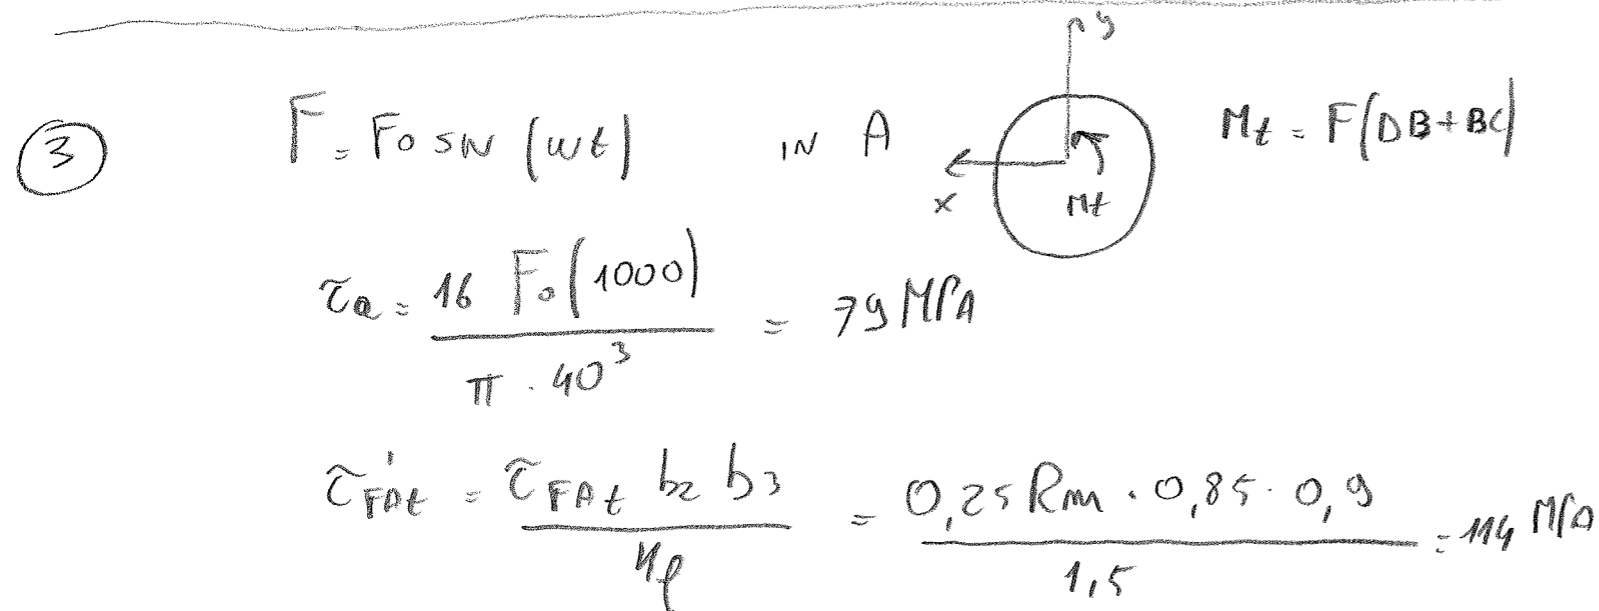 y
③ F = F0 SIN (wt) IN A Mt = F(DB+BC)
x Mt
τa = 16 F0(1000) / π · 40³ = 79 MPA
τ'FAt = τFAt b2 b3 / Kf = 0,25 Rm · 0,85 · 0,9 / 1,5 = 114 MPA